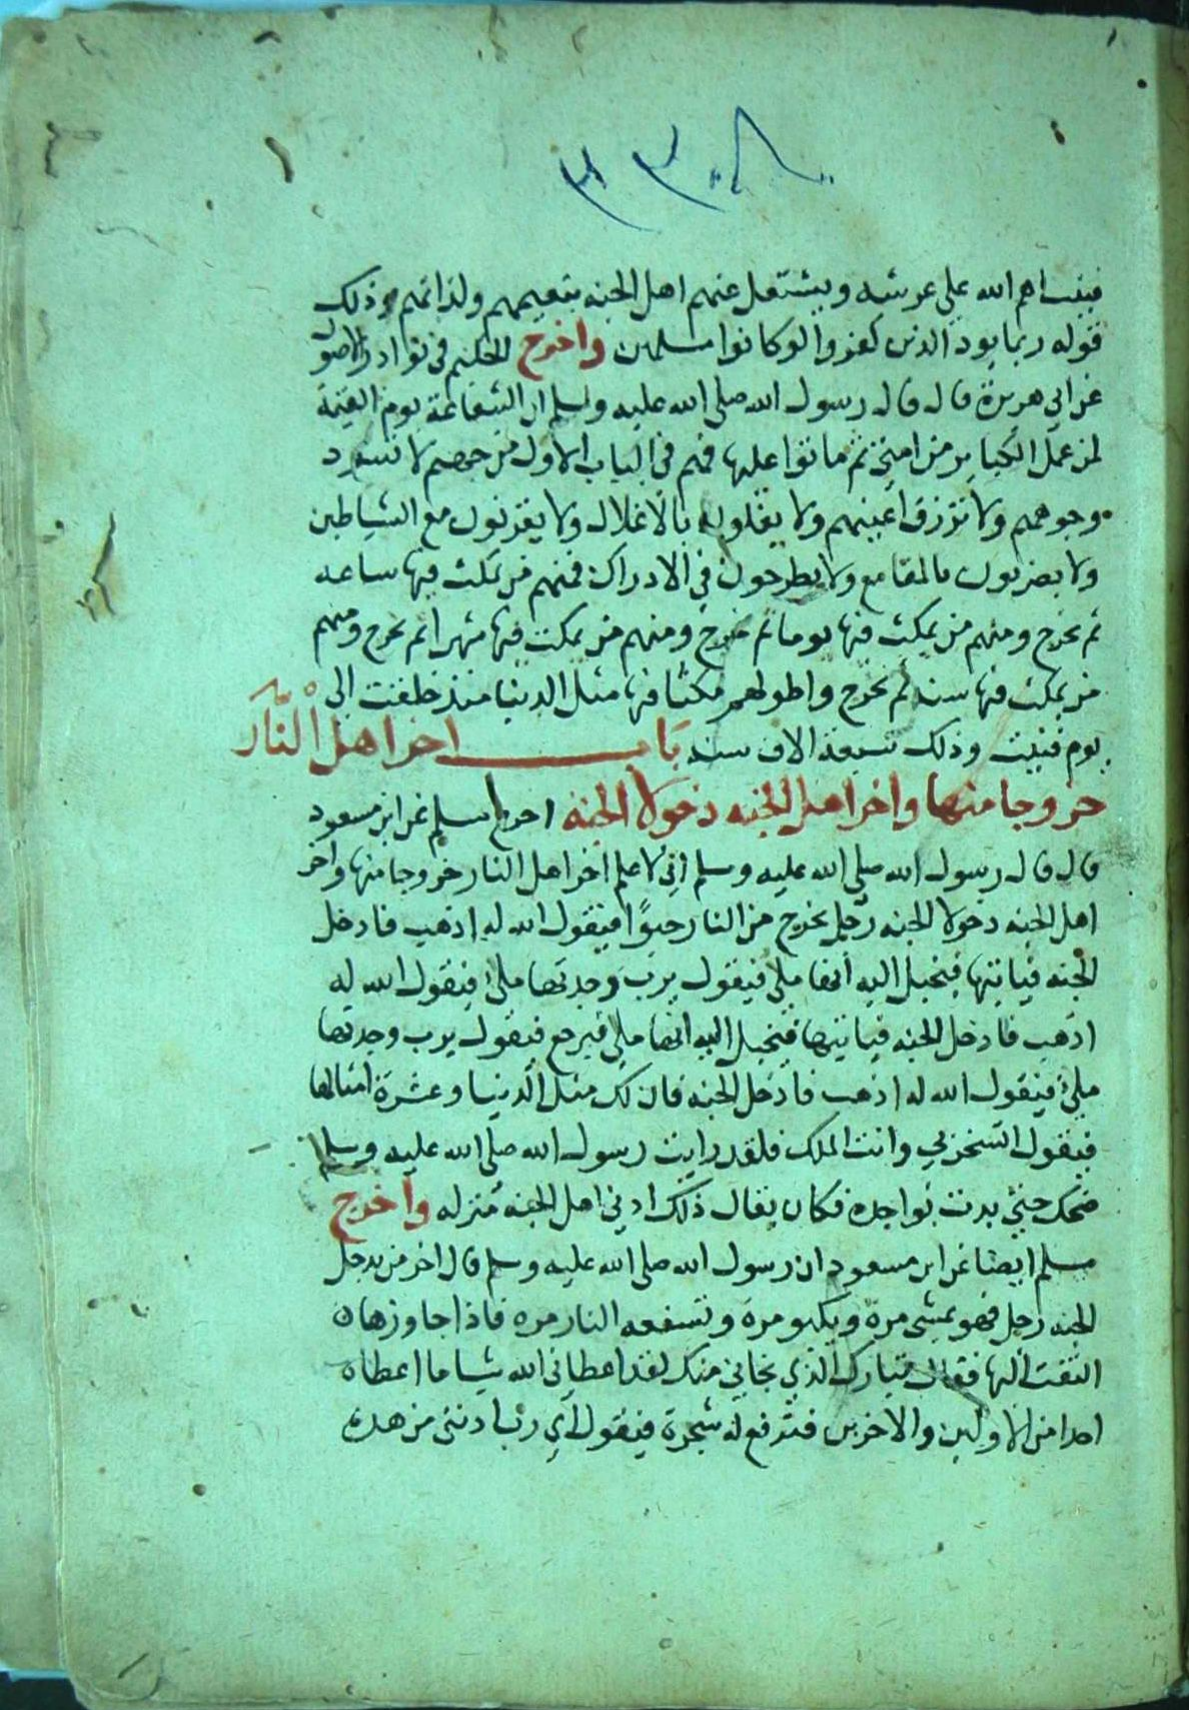 ٣٣٠٨
فينساهم الله على عرشه ويشتغل عنهم اهل الجنه بنعيمهم ولذاتهم وذلك
قوله ربما يود الذين كفروا لو كانوا مسلمين واخرج الحكيم في نوادر الاصول
عن ابي هريرة قال قال رسول الله صلى الله عليه وسلم ان الشفاعة يوم القيمة
لمن عمل الكباير من امتي ثم ماتوا عليها فهم في الباب الاول من جهنم لا تسود
وجوههم ولا تزرق اعينهم ولا يغلون بالاغلال ولا يقرنون مع الشياطين
ولا يضربون بالمقامع ولا يطرحون في الادراك فمنهم من يمكث فيها ساعه
ثم يخرج ومنهم من يمكث فيها يوما ثم يخرج ومنهم من يمكث فيها شهرا ثم يخرج ومنهم
من يمكث فيها سنه ثم يخرج واطولهم مكثا فيها مثل الدنيا منذ خلقت الى
يوم فنيت وذلك سبعة الاف سنه باب اخر اهل النار
خروجا منها واخر اهل الجنه دخولا الجنة اخرج مسلم عن ابن مسعود
قال قال رسول الله صلى الله عليه وسلم اني لاعلم اخر اهل النار خروجا منها واخر
اهل الجنه دخولا الجنه رجل يخرج من النار حبوًا فيقول الله له اذهب فادخل
الجنه فياتيها فيخيل اليه انها ملئ فيقول يرب وجدتها ملئ فيقول الله له
اذهب فادخل الجنه فياتيها فيخيل اليه انها ملئ فيرجع فيقول يرب وجدتها
ملئ فيقول الله له اذهب فادخل الجنه فان لك مثل الدنيا وعشرة امثالها
فيقول اتسخر بي وانت الملك فلقد رايت رسول الله صلى الله عليه وسلم
ضحك حتى بدت نواجده فكان يقال ذلك ادنى اهل الجنه منزله واخرج
مسلم ايضا عن ابن مسعود ان رسول الله صلى الله عليه وسلم قال اخر من يدخل
الجنه رجل فهو يمشي مرة ويكبو مرة وتسفعه النار مره فاذا جاوزها
التفت اليها فقال تبارك الذي نجاني منك لقد اعطاني الله شيا ما اعطاه
احدا من الاولين والاخرين فترفع له شجرة فيقول اي رب ادنني من هده